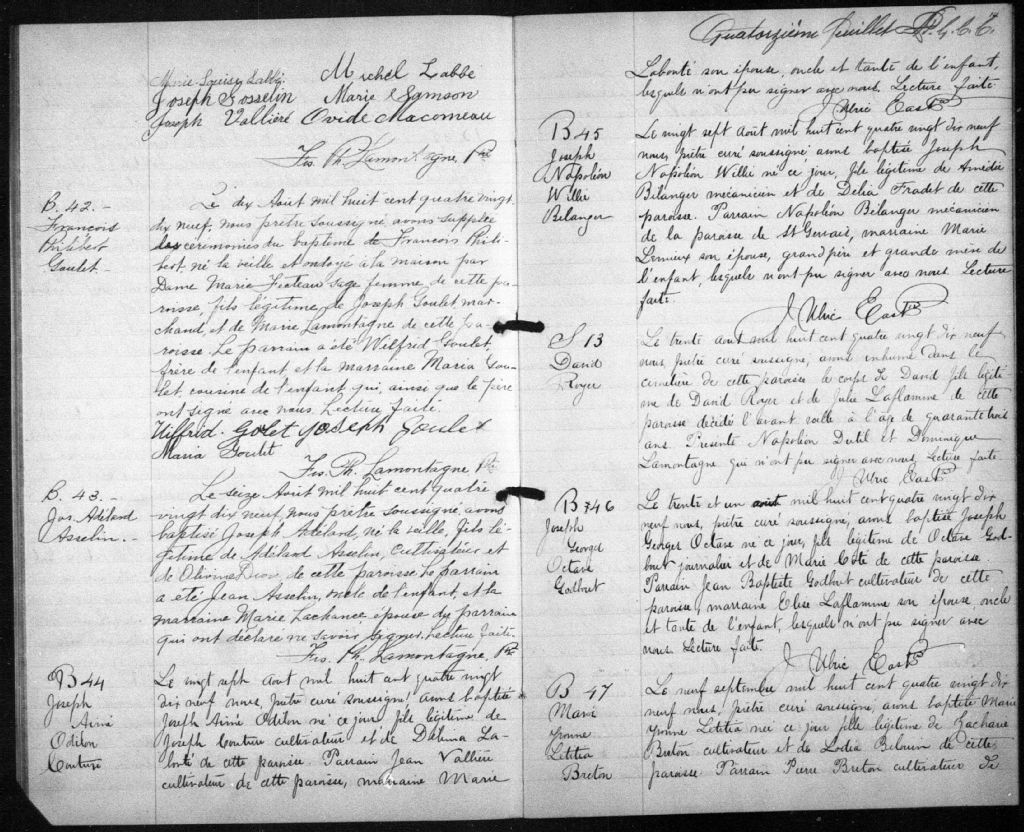 Marie Louise Labbé Michel Labbé
Joseph Gosselin Marie Samson
Joseph Vallière Ovide Macomeau
Frs. Ph. Lamontagne, Ptre
B. 42. -
François
Philibert
Goulet -
Le dix Aout mil huit cent quatre vingt
dix neuf, nous prêtre soussigné avons supplée
les cérémonies du baptême de François Phili-
bert né la veille et ondoyé à la maison par
Dame Marie Fecteau sage femme, de cette pa-
roisse, fils légitime de Joseph Goulet mar-
chand, et de Marie Lamontagne de cette pa-
roisse. Le parrain a été Wilfrid Goulet,
frère de l'enfant et la marraine Maria Gou-
let, cousine de l'enfant qui, ainsi que le père
ont signé avec nous. Lecture faite.
Wilfrid Golet Joseph Goulet
Maria Goulet
Frs. Ph. Lamontagne Ptre
B. 43. -
Jos. Adélard
Asselin. -
Le seize Aout mil huit cent quatre
vingt dix neuf, nous prêtre soussigné, avons
baptisé Joseph Adélard, né la veille, fils lé-
gitime de Adélard Asselin, cultivateur et
de Olivine Dion, de cette paroisse Le parrain
a été Jean Asselin, oncle de l'enfant, et la
marraine Marie Lachance épouse du parrain
qui ont déclaré ne savoir signer. Lecture faite.
Frs. Ph. Lamontagne, Ptre
B 44
Joseph
Aimé
Odilon
Couture
Le vingt sept août mil huit cent quatre vingt
dix neuf nous, prêtre curé soussigné, avons baptisé
Joseph Aimé Odilon né ce jour, fils légitime de
Joseph Couture cultivateur et de Dalima La-
bonté de cette paroisse. Parrain Jean Vallière
cultivateur de cette paroisse, marraine Marie
Quatorzième feuillet
Labonté son épouse, oncle et tante de l'enfant,
lesquels n'ont pu signer avec nous. Lecture faite
J Ulric East Ptre
B 45
Joseph
Napoléon
Willie
Bélanger
Le vingt sept août mil huit cent quatre vingt dix neuf
nous, prêtre curé soussigné, avons baptisé Joseph
Napoléon Willie né ce jour, fils légitime de Amédée
Bélanger mécanicien et de Delia Fradet de cette
paroisse. Parrain Napoléon Bélanger mécanicien
de la paroisse de St Gervais, marraine Marie
Lemieux son épouse, grand père et grande mère de
l'enfant, lesquels n'ont pu signer avec nous. Lecture
faite.
J Ulric East Ptre
S 13
David
Royer
Le trente août mil huit cent quatre vingt dix neuf
nous, prêtre curé soussigné, avons inhumé dans le
cimetière de cette paroisse le corps de David fils légiti-
me de David Royer et de Julie Laflamme de cette
paroisse décédé l'avant veille à l'age de quarante trois
ans. Présents Napoléon Dutil et Dominique
Lamontagne qui n'ont pu signer avec nous. Lecture faite.
J Ulric East Ptre
B 46
Joseph
Georges
Octave
Godbout
Le trente et un août mil huit cent quatre vingt dix
neuf nous, prêtre curé soussigné, avons baptisé Joseph
Georges Octave né ce jour, fils légitime de Octave God-
bout journalier et de Marie Côté de cette paroisse
Parrain Jean Baptiste Godbout cultivateur de cette
paroisse, marraine Elise Laflamme son épouse, oncle
et tante de l'enfant, lesquels n'ont pu signer avec
nous. Lecture faite.
J Ulric East Ptre
B 47
Marie
Yvonne
Létitia
Breton
Le neuf septembre mil huit cent quatre vingt dix
neuf nous, prêtre curé soussigné, avons baptisé Marie
Yvonne Létitia née ce jour fille légitime de Zacharie
Breton cultivateur et de Lodia de cette
paroisse. Parrain Pierre Breton cultivateur de